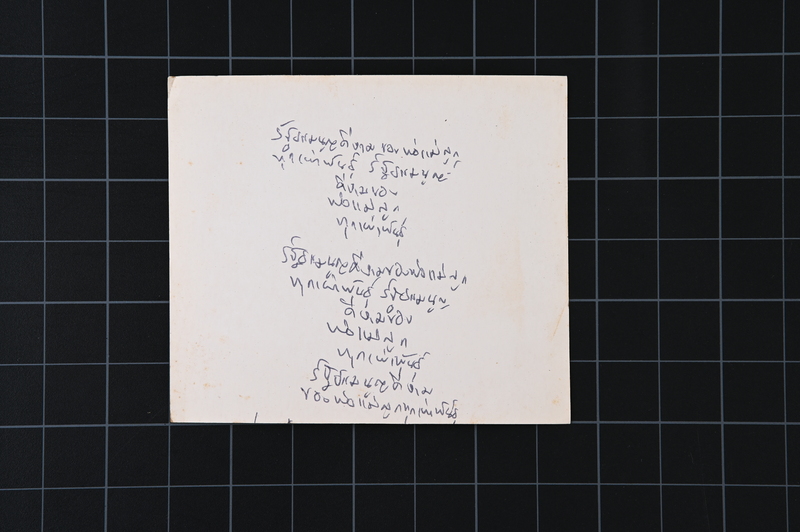 รัฐธรรมนูญดีงาม ของพ่อแม่ลูก
ทุกเผ่าพันธุ์ รัฐธรรมนูญ
ดีงามของ
พ่อแม่ลูก
ทุกเผ่าพันธุ์
รัฐธรรมนูญดีงามของพ่อแม่ลูก
ทุกเผ่าพันธุ์ รัฐธรรมนูญ
ดีงามของ
พ่อแม่ลูก
ทุกเผ่าพันธุ์
รัฐธรรมนูญดีงาม
ของพ่อแม่ลูกทุกเผ่าพันธุ์